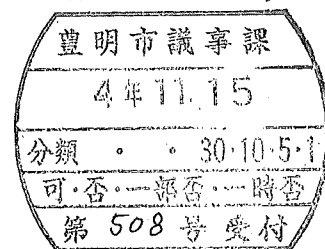 豊明市議事課
4年11.15
分類 ・ ・ 30・10・5・1
可・否・一部否・一時否
第 508 号 受付